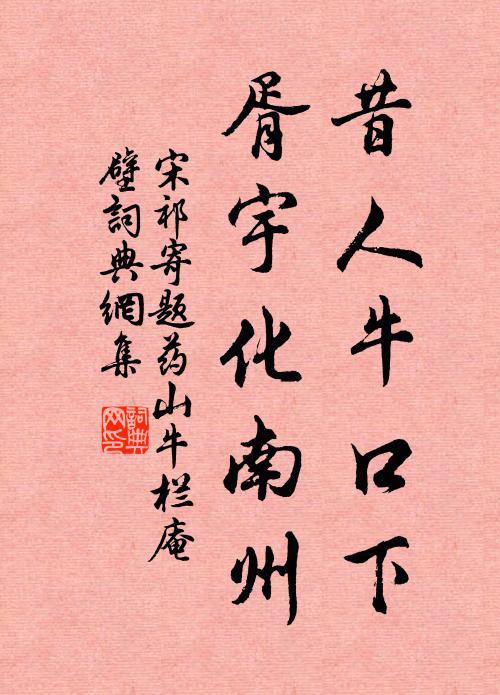 昔人牛口下
胥宇化南州
宋祁寄题药山牛栏庵
壁詞典網集
詞典网印